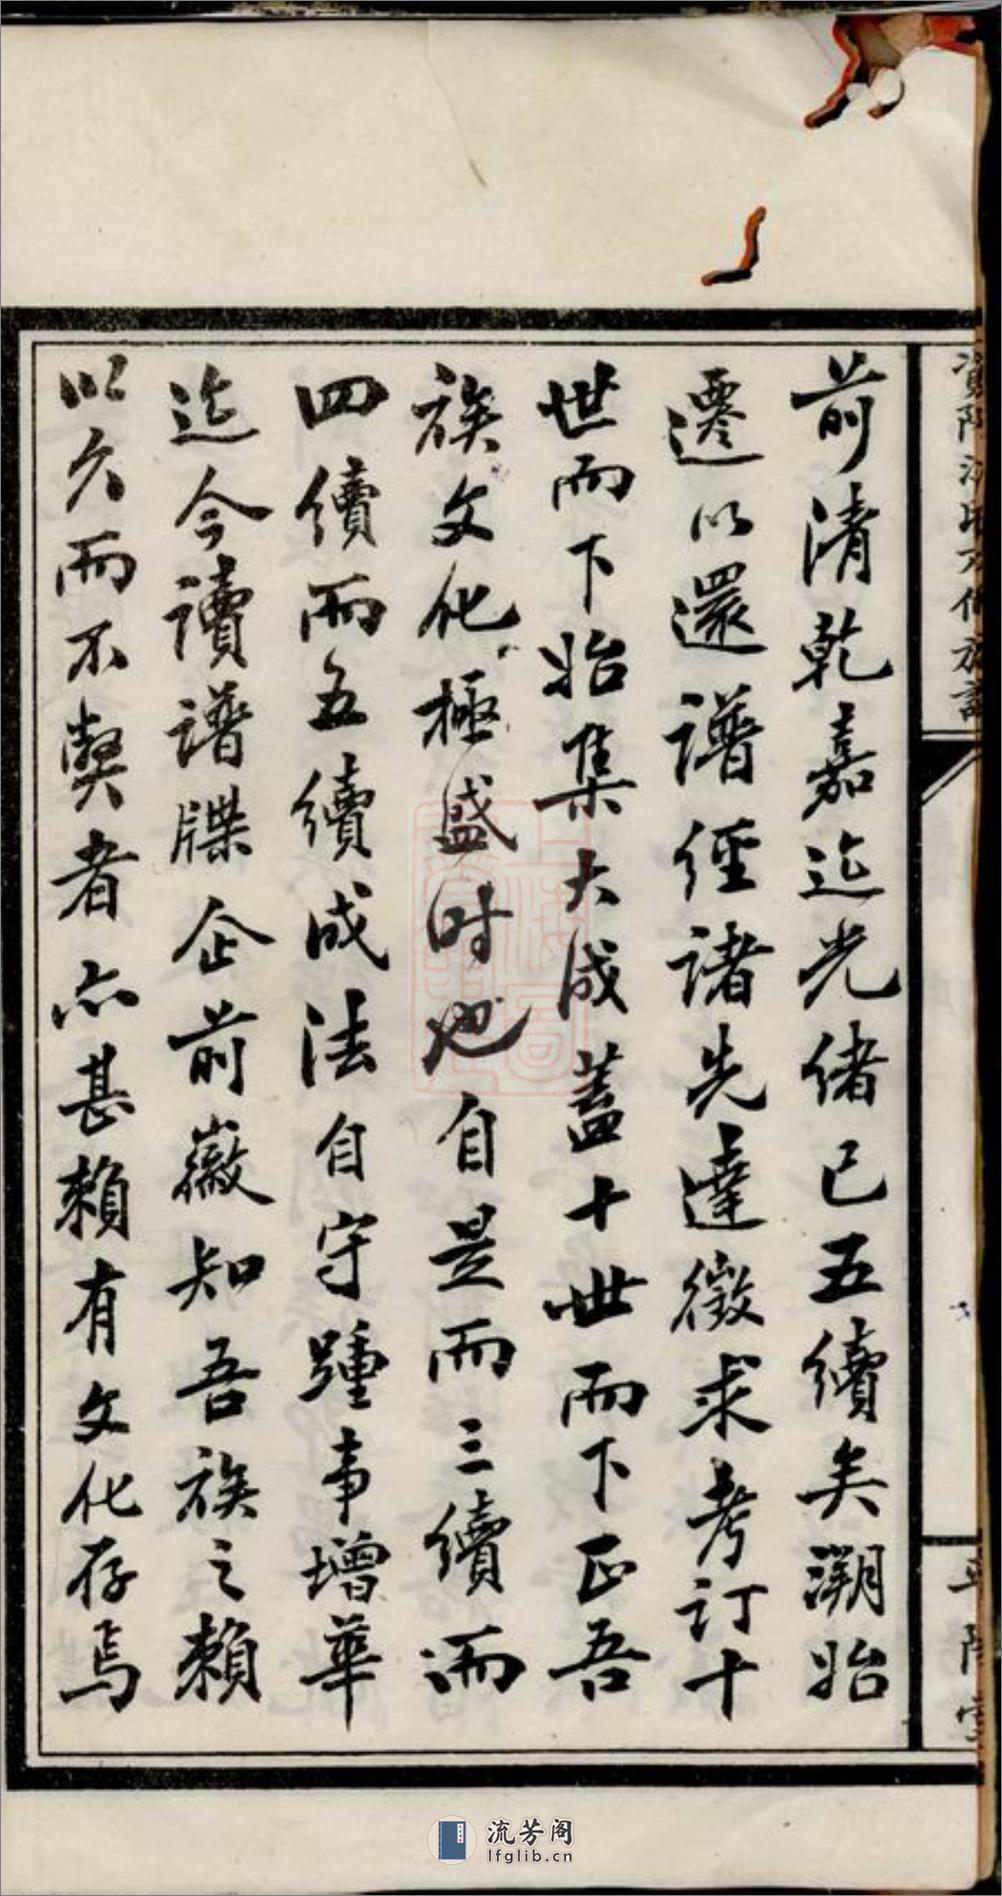 前清乾嘉迄光緒已五續矣溯始
遷以還譜經諸先達徵求考訂十
世而下始集大成蓋十世而下正吾
族文化極盛时也自是而三續而
四續而五續成法自守踵事增華
迄今讀譜牒企前徽知吾族之賴
以久而不弊者亦甚賴有文化存焉
流芳阁
lfglib.cn